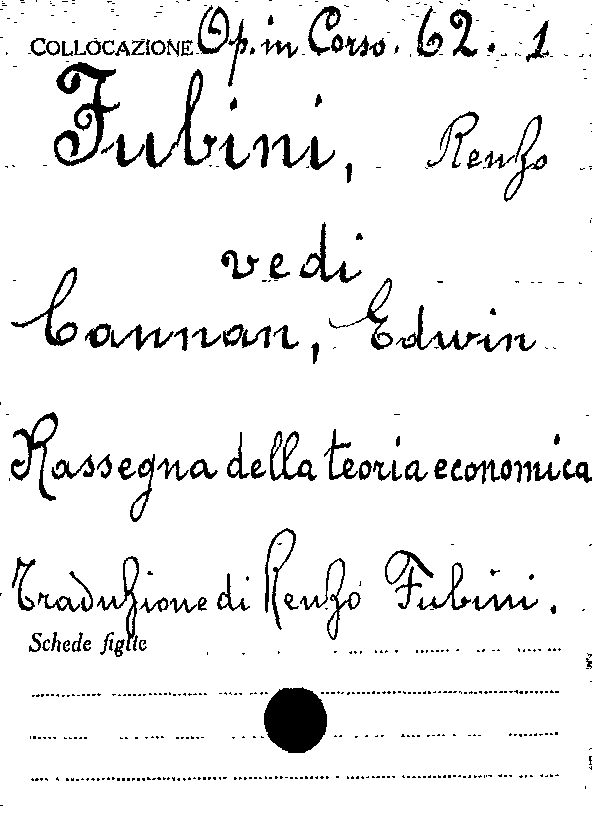 COLLOCAZIONE Op. in Corso. 62. 1
Fubini, Renzo
vedi
Cannan, Edwin
Rassegna della teoria economica
Traduzione di Renzo Fubini.
Schede figlie